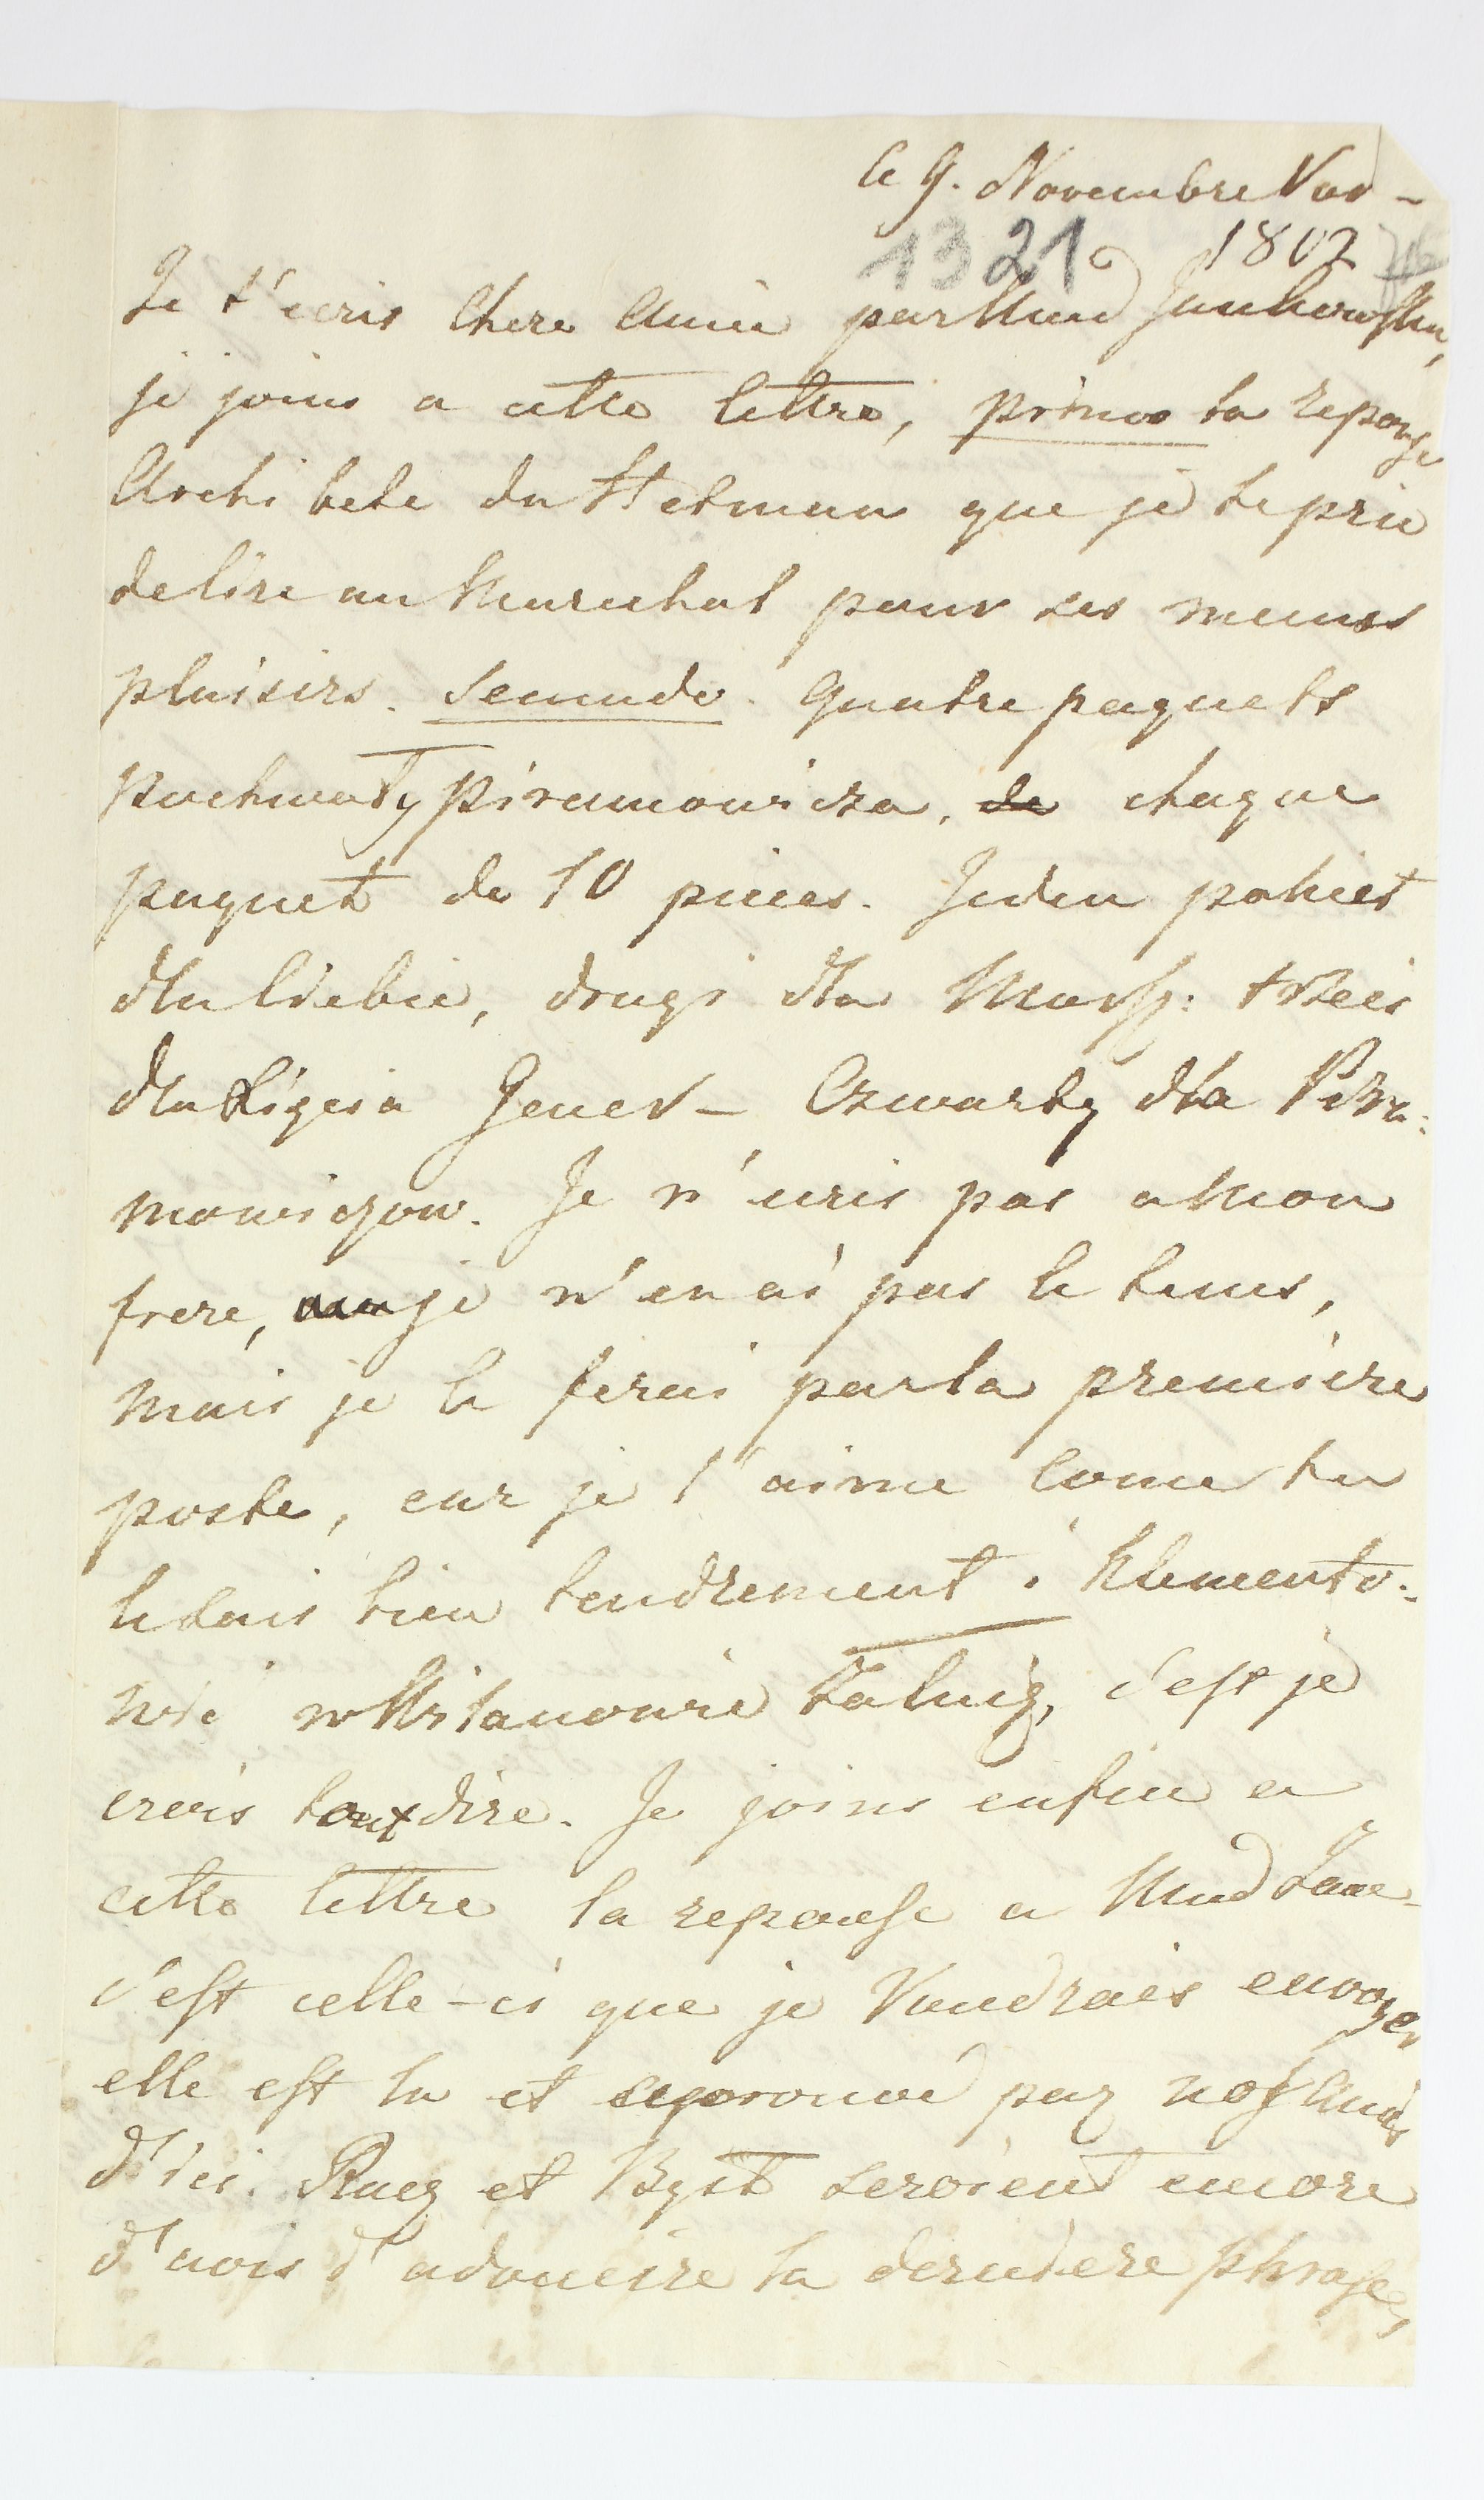 le 9. Novembre Var-
1321 1802
Je t'ecris Chere Amie par Mad Junkowska,
je joins a cette lettre, primo la reponse
Archi bete du Hetman que je te prie
de lire au Marechal pour ses menus
plaisirs. Secundo. Quatre paquets
pochwały Piramowicza, de chaque
paquet de 10 pieces. Jeden pakiet
dla Ciebie, drugi dla Marsz: trzeci
dla Xięcia Gener- Czwarty dla Pira:
mowiczow. Je n'ecris pas a Mon
frere, je n'en ai pas le tems,
mais je le ferai par la premiere
poste, car je l'aime come tu
le sais bien tendrement. i Klemento:
c'est je
crois tout dire. Je joins enfin a
cette lettre la reponse a Mad Lane-
c'est celle-ci que je Voudrais envoyer
elle est lu et approuvé par nos Amis
d'ici. Racz et Byst seroient encore
d'avis d'adoucire la derniere phrase,